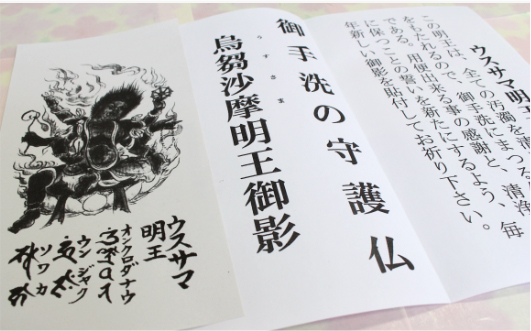 ウスサマ明
この明王は、全ての汚濁を清
をもたれるので、御手洗にまつる
である。用便出来る事の感謝と、清浄
に保つことの誓いを新たにするよう、毎
年新しい御影を貼付してお祈り下さい。
御手洗の守護仏
うすさま
烏芻沙摩明王御影
ウスサマ
明王
オンクロダナウ
ウンジャク
ソワカ